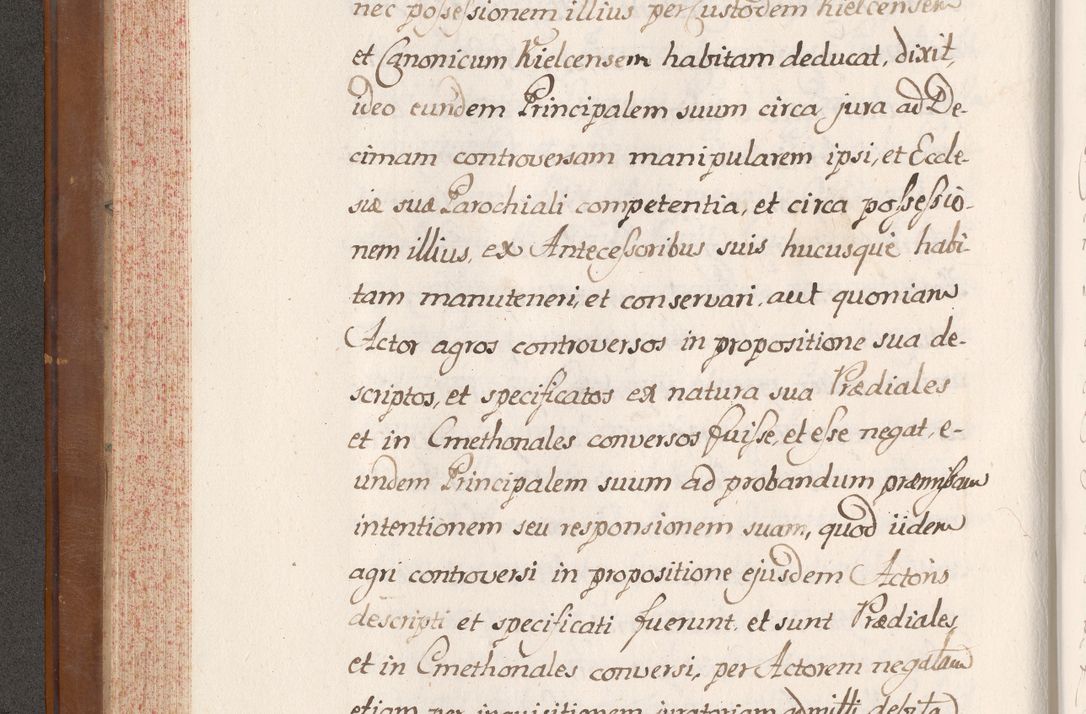 nec possessionem illius per Custodem Kielcensem
et Canonicum Kielcensem habitam deducat, dixit,
ideo eundem Principalem suum circa jura ad De-
cimam controversam manipularem ipsi, et Eccle-
siæ suæ Parochiali competentia, et circa possessio-
nem illius, ex Antecessoribus suis hucusque habi-
tam manuteneri, et conservari, aut quoniam
Actor agros controversos in propositione sua de-
scriptos, et specificatos ex natura sua Prædiales
et in Cmethonales conversos fuisse, et esse negat, e-
undem Principalem suum ad probandum præmissam
intentionem seu responsionem suam, quod iidem
agri controversi in propositione ejusdem Actoris
descripti et specificati fuerunt, et sunt Prædiales,
et in Cmethonales conversi, per Actorem negatam
etiam per inquisitionem juratoriam admitti debita